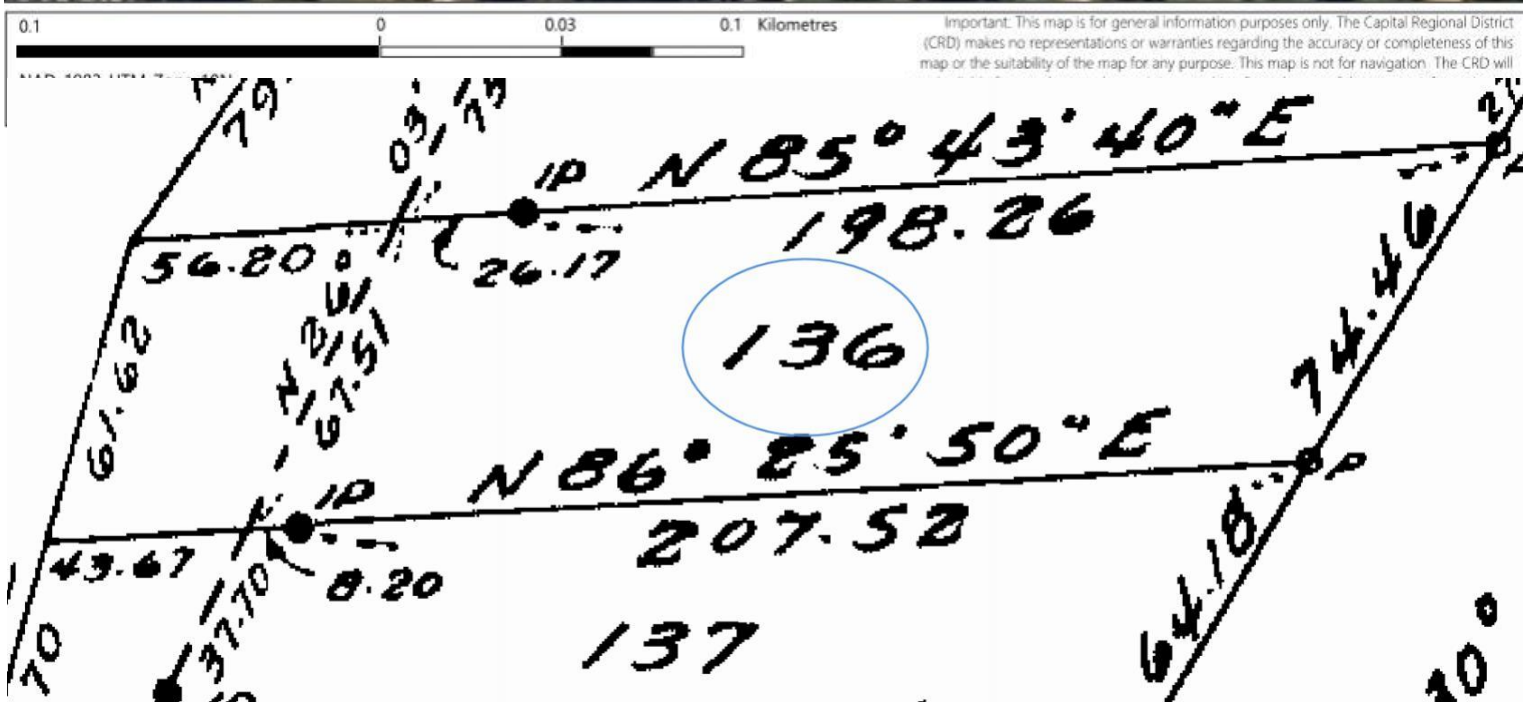 0.1 0 0.03 0.1 Kilometres
Important: This map is for general information purposes only. The Capital Regional District
(CRD) makes no representations or warranties regarding the accuracy or completeness of this
map or the suitability of the map for any purpose. This map is not for navigation. The CRD will
79
03'
N 85° 43' 40" E
IP
198.26
56.20
26.17
61.62
67.51
136
74.46
N 86° 25' 50" E
IP
207.52
43.67
8.20
37.70
64.18
137
70